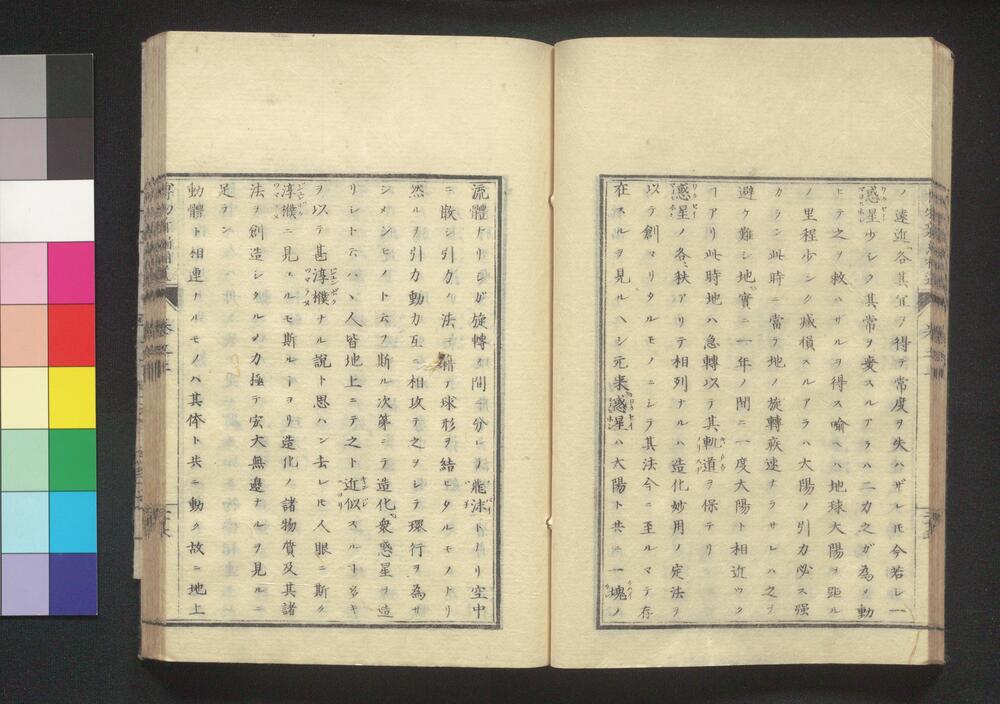 ノ遠近各其宜ヲ得テ常度ヲ失ハザレ𪜈今若シ一
惑星少シク其常ヲ変スルアラハ二力之ガ為ノ動
ヒテ之ヲ救ハザルヲ得ス喩ヘハ地球大陽ヲ距ル
ノ里程少シク減損スルアラハ大陽ノ引力必ス强
カラン此時ニ當テ地ノ旋轉疾速ナラサレハ之ヲ
避ケ難シ地實ニ一年ノ間ニ一度大陽ト相近ツク
ヿアリ此時地ハ急轉以テ其軌道ヲ保テリ
惑星ノ各秩アリテ相列ナルハ造化妙用ノ定法ヲ
以テ創マリタルモノニシテ其法今ニ至ルマテ存
在スルヲ見ルヘシ元来惑星ハ大陽ト共ニ一塊ノ
流體ナリシガ旋轉ノ間分レテ飛沫トナリ空中
ニ散シ引力ノ法ニ藉テ球形ヲ結ヒタルモノナリ
然ルヲ引力動力互ニ相攻テ之ヲシテ環行ヲ為サ
シメンヒノト云フ斯ル次第ニテ造化衆惑星ヲ造
リシト云ハヽ人皆地上ニテ之ト近似スルヿ多キ
ヲ以テ甚淳樸ナル説ト思ハン去レ𪜈人眼ニ斯ク
淳樸ニ見ユルモ斯ルヿヨリ造化ノ諸物質及其諸
法ヲ創造シタルノ力極テ宏大無邊ナルヲ見ルニ
足テン
動體ト相連ナルモノハ其体ト共ニ動ク故ニ地上